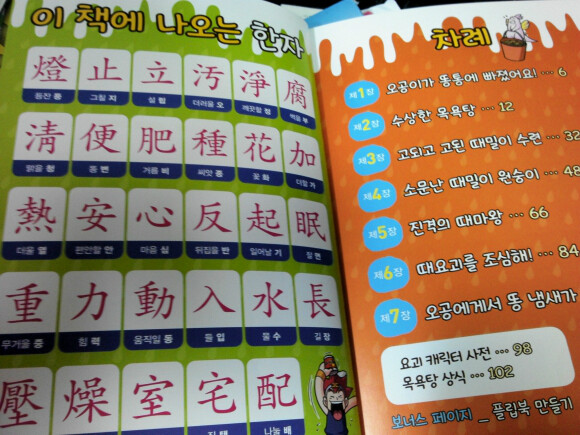 이 책에 나오는 한자
燈 止 立 汚 淨 腐
등잔 등 그칠 지 설 립 더러울 오 깨끗할 정 썩을 부
淸 便 肥 種 花 加
맑을 청 똥 변 거름 비 씨앗 종 꽃 화 더할 가
熱 安 心 反 起 眠
더울 열 편안할 안 마음 심 뒤집을 반 일어날 기 잘 면
重 力 動 入 水 長
무거울 중 힘 력 움직일 동 들 입 물 수 길 장
壓 燥 室 宅 配
집 택 나눌 배
차례
제1장 오공이가 똥통에 빠졌어요! … 6
제2장 수상한 목욕탕 … 12
제3장 고되고 고된 때밀이 수련 … 32
제4장 소문난 때밀이 원숭이 … 48
제5장 진격의 때마왕 … 66
제6장 때요괴를 조심해! … 84
제7장 오공에게서 똥 냄새가
요괴 캐릭터 사전 … 98
목욕탕 상식 … 102
보너스 페이지 _ 플립북 만들기